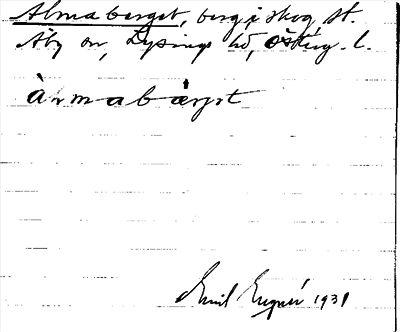 Alma berget, berg i skog, St.
Åby sn, Lysings hd, Östg. l.
àrmabärjət
Emil 1931